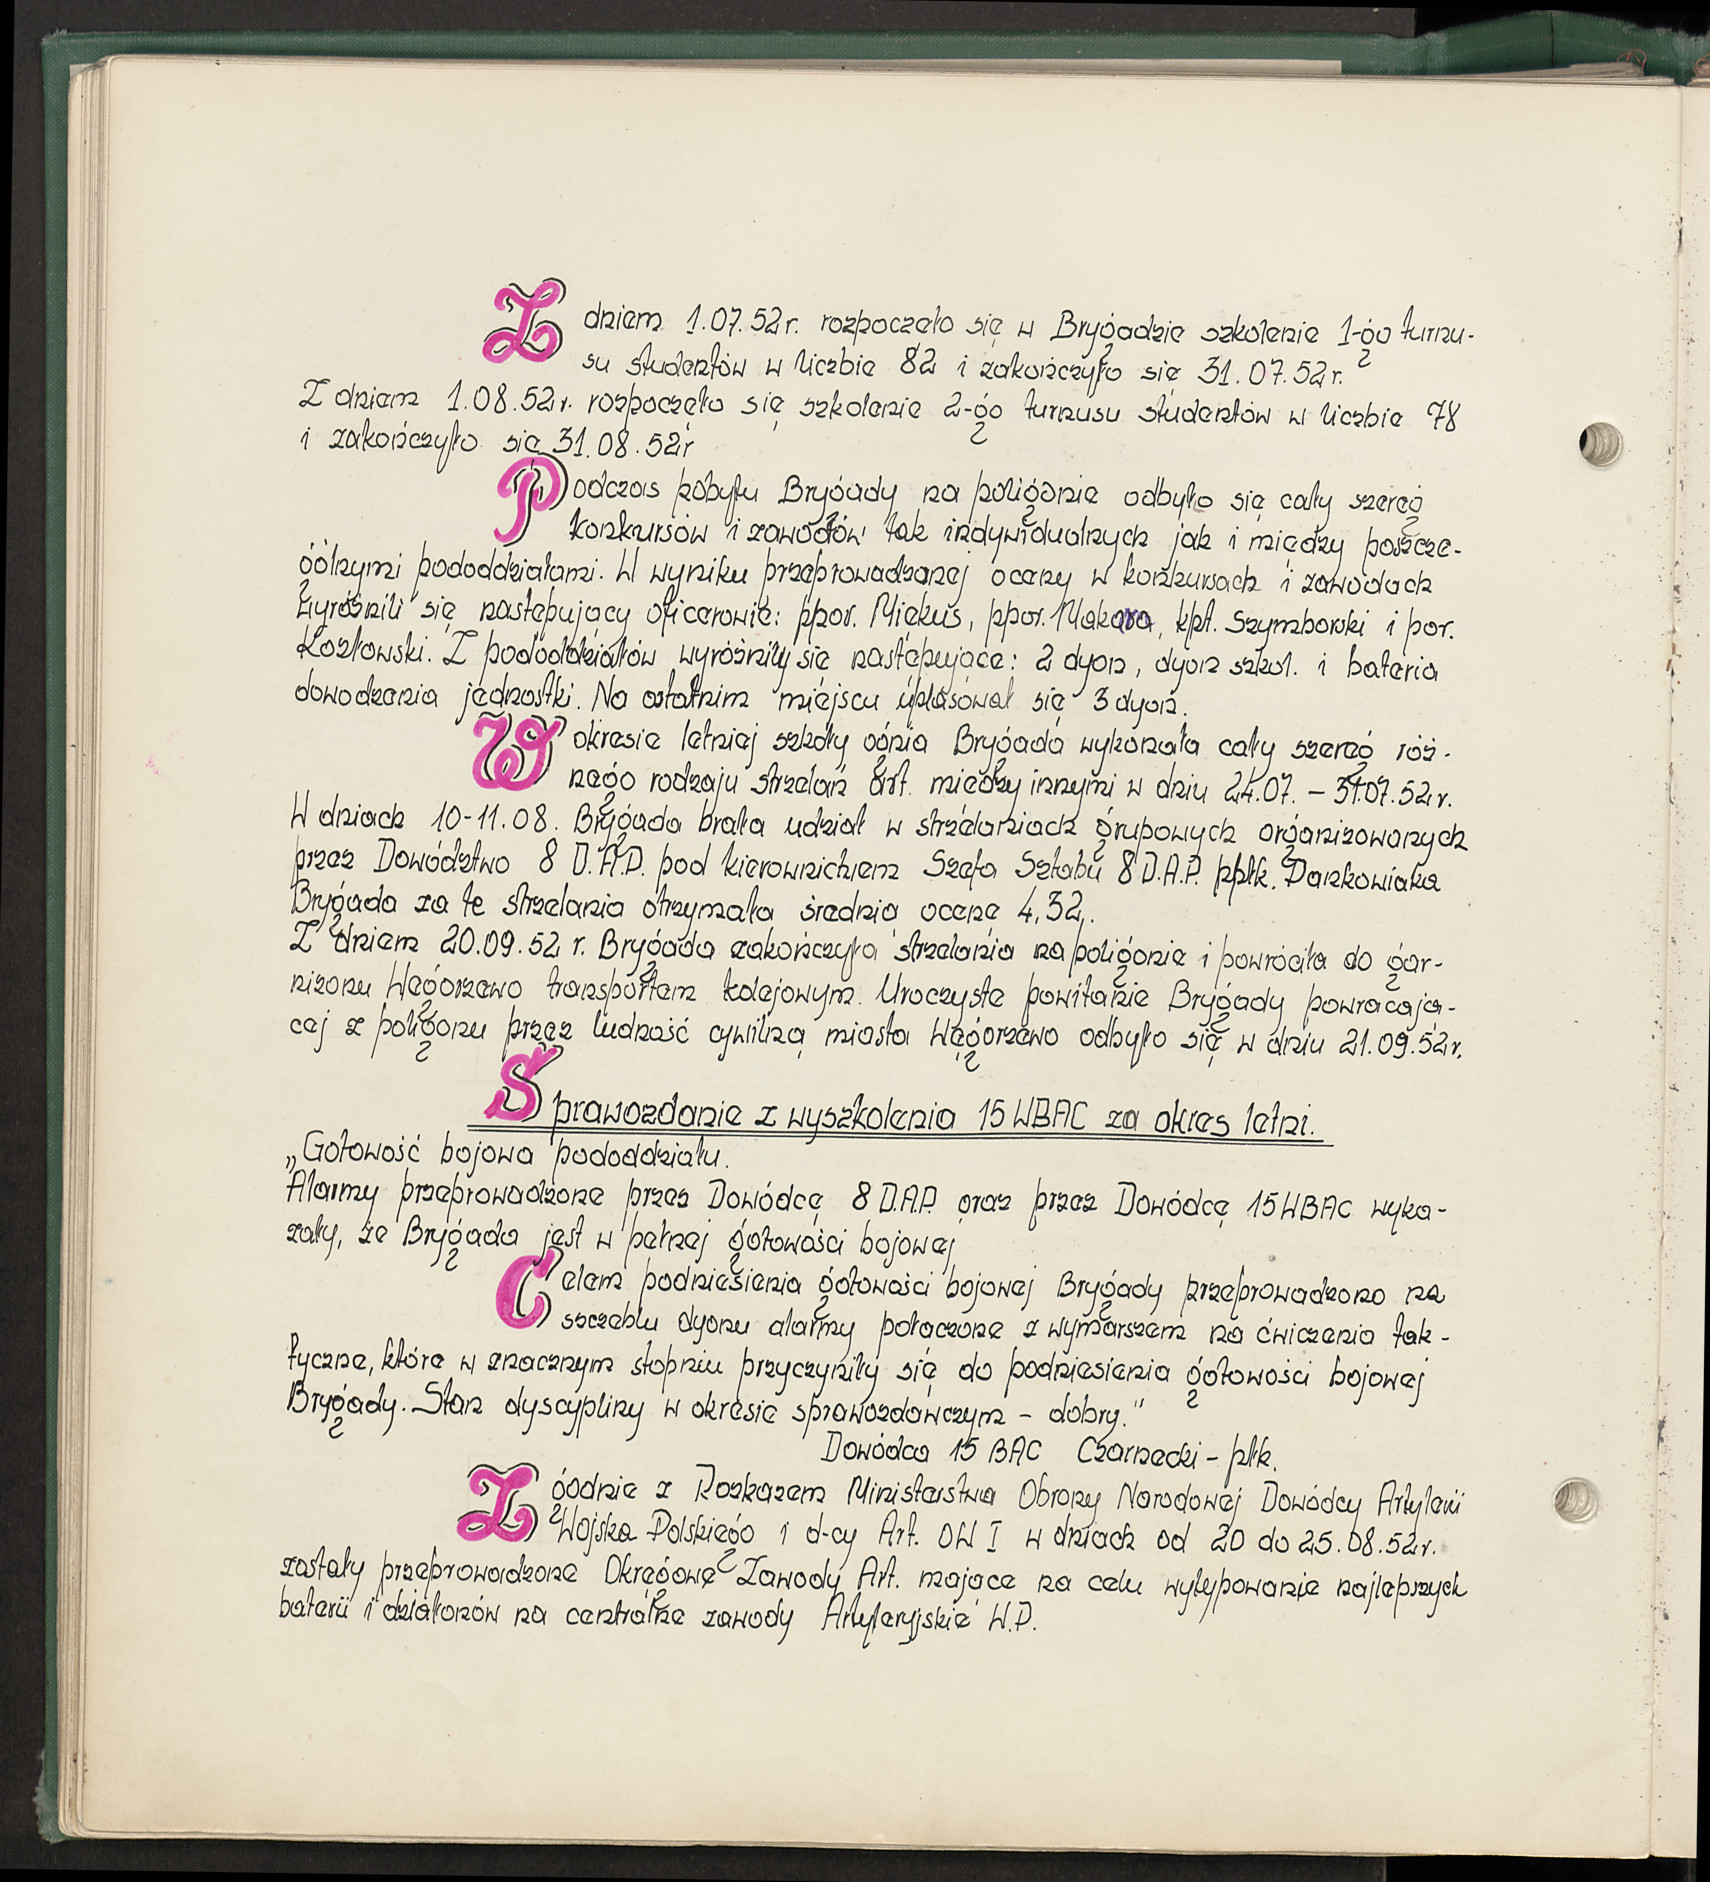 Z dniem 1.07.52r. rozpoczęto się w Brygadzie szkolenie 1-go turnu-
su studentów w liczbie 82 i zakończyło się 31.07.52r.
Z dniem 1.08.52r. rozpoczęto się szkolenie 2-go turnusu studentów w liczbie 78
i zakończyło się 31.08.52r
Podczas pobytu Brygady na poligonie odbyło się cały szereg
konkursów i zawodów tak indywidualnych jak i między poszcze-
gólnymi pododdziałami. W wyniku przeprowadzonej oceny w konkursach i zawodach
wyróżnili się następujący oficerowie: ppor. Miekus, ppor. Makara, kpt. Szymborski i por.
Kozłowski. Z pododdziałów wyróżniły się następujące: 2 dyon, dyon szkol. i bateria
dowodzenia jednostki. Na ostatnim miejscu uplasował się 3 dyon.
W okresie letniej szkoły ognia Brygada wykonała cały szereg róż-
nego rodzaju strzelań art. między innymi w dniu 24.07. – 31.07.52r.
W dniach 10-11.08. Brygada brała udział w strzelaniach grupowych organizowanych
przez Dowództwo 8 D.A.P. pod kierownictwem Szefa Sztabu 8 D.A.P. ppłk. Dankowiaka
Brygada za te strzelania otrzymała średnią ocenę 4,32,.
Z dniem 20.09.52 r. Brygada zakończyła strzelania na poligonie i powróciła do gar-
nizonu Węgorzewo transportem kolejowym. Uroczyste powitanie Brygady powracają-
cej z poligonu przez ludność cywilną miasta Węgorzewo odbyło się w dniu 21.09.52r.
Sprawozdanie z wyszkolenia 15 WBAC za okres letni.
„Gotowość bojowa pododdziału.
Alarmy przeprowadzone przez Dowódcę 8 D.A.P. oraz przez Dowódcę 15 WBAC wyka-
zały, że Brygada jest w pełnej gotowości bojowej
Celem podniesienia gotowości bojowej Brygady przeprowadzono na
szczeblu dyonu alarmy połączone z wymarszem na ćwiczenia tak-
tyczne, które w znacznym stopniu przyczyniły się do podniesienia gotowości bojowej
Brygady. Stan dyscypliny w okresie sprawozdawczym – dobry."
Dowódca 15 BAC Czarnecki – płk.
Zgodnie z Rozkazem Ministerstwa Obrony Narodowej Dowódcy Artylerii
Wojska Polskiego i d-cy Art. OW I w dniach od 20 do 25.08.52r.
zostały przeprowadzone Okręgowe Zawody Art. mające na celu wytypowanie najlepszych
baterii i działonów na centralne zawody Artyleryjskie W.P.